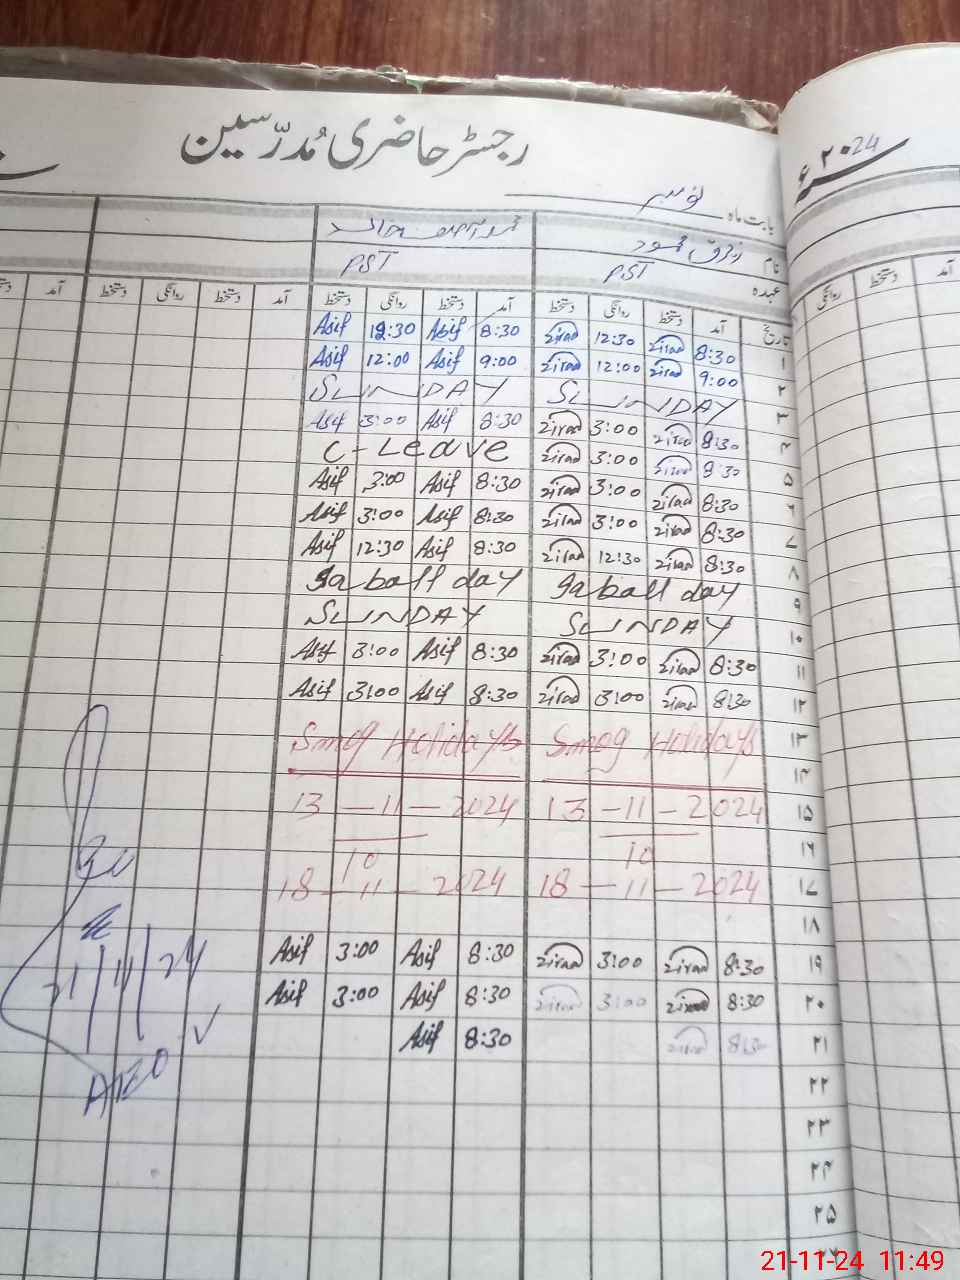 رجسٹر حاضری مُدرّسین
۲۰24ء
بابت ماہ نومبر
نام محمود
محمد آصف خالد
عہدہ PST PST
تاریخ آمد دستخط روانگی دستخط آمد دستخط روانگی دستخط آمد دستخط روانگی دستخط آمد
Asif 12:30 Asif 8:30 12:30 8:30 ۱
Asif 12:00 Asif 9:00 12:00 9:00 ۲
SUNDAY SUNDAY ۳
Asif 3:00 Asif 8:30 3:00 8:30 ۴
C-Leave 3:00 8:30 ۵
Asif 3:00 Asif 8:30 3:00 8:30 ۶
Asif 3:00 Asif 8:30 3:00 8:30 ۷
Asif 12:30 Asif 8:30 12:30 8:30 ۸
Iqball day Iqball day ۹
SUNDAY SUNDAY ۱۰
Asif 3:00 Asif 8:30 3:00 8:30 ۱۱
Asif 3:00 Asif 8:30 3:00 8:30 ۱۲
Smog Holidays Smog Holidays ۱۳
۱۴
13-11-2024 13-11-2024 ۱۵
To To ۱۶
18-11-2024 18-11-2024 ۱۷
۱۸
Asif 3:00 Asif 8:30 3:00 8:30 ۱۹
Asif 3:00 Asif 8:30 3:00 8:30 ۲۰
Asif 8:30 8:30 ۲۱
21/11/24
AEO
۲۲
۲۳
۲۴
۲۵
21-11-24 11:49